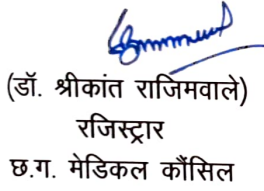 (डॉ. श्रीकांत राजिमवाले)
रजिस्ट्रार
छ.ग. मेडिकल कौंसिल